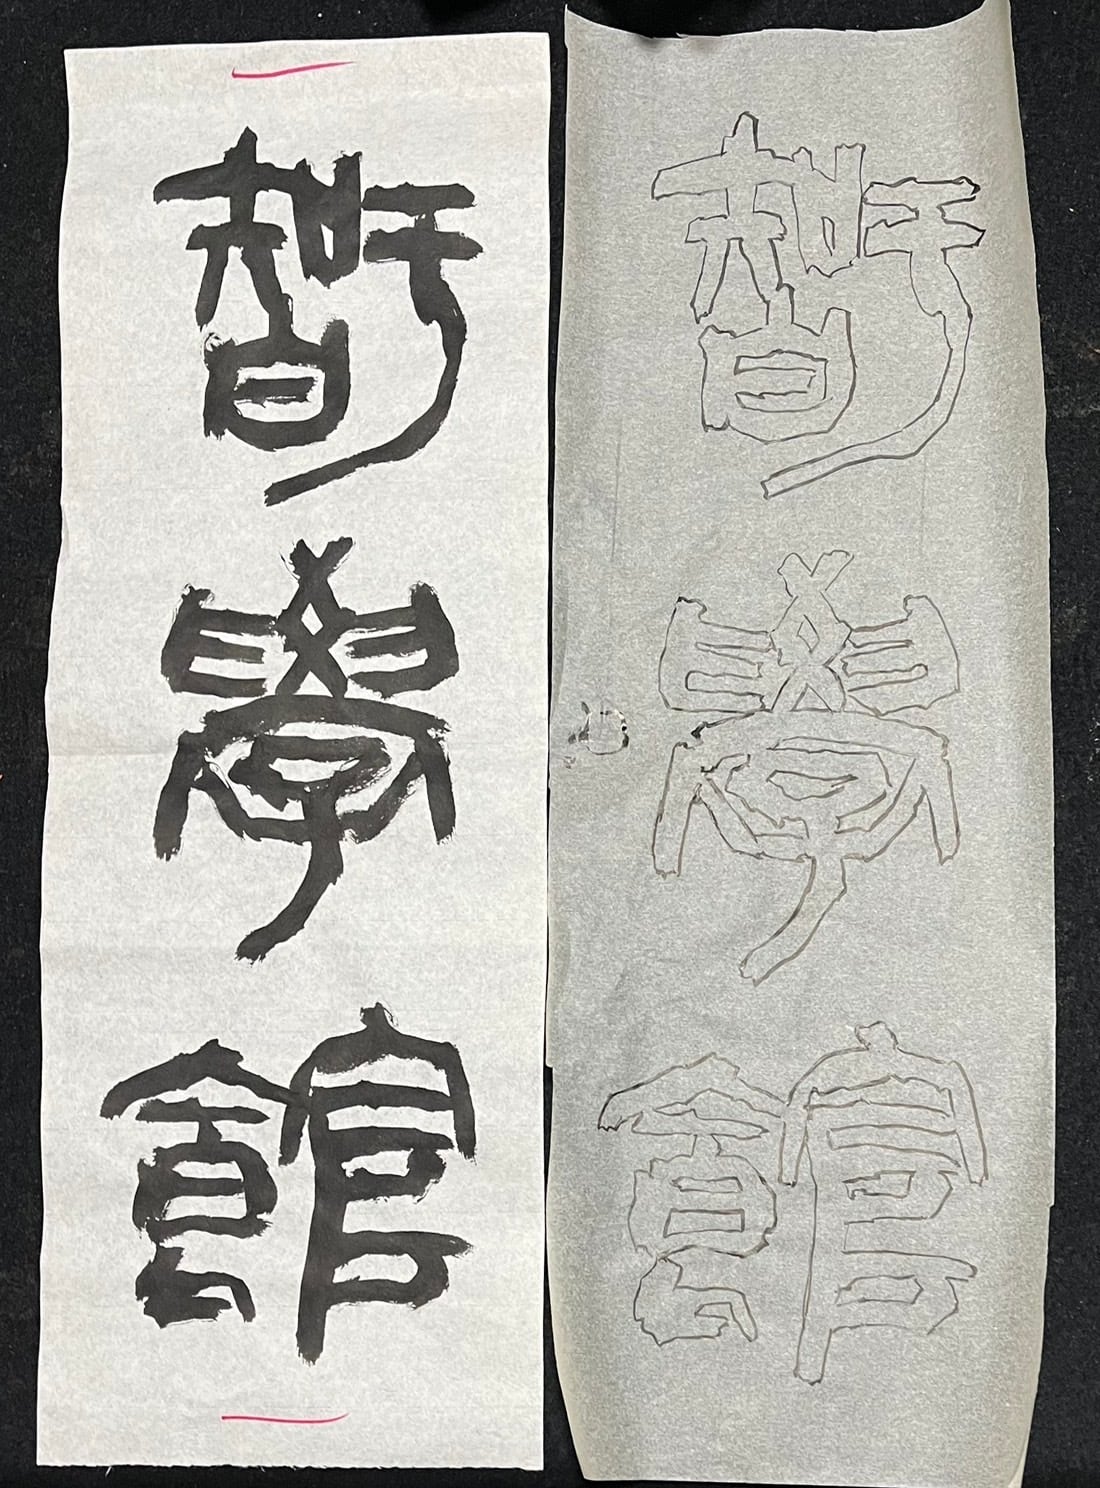 智學館
智學館